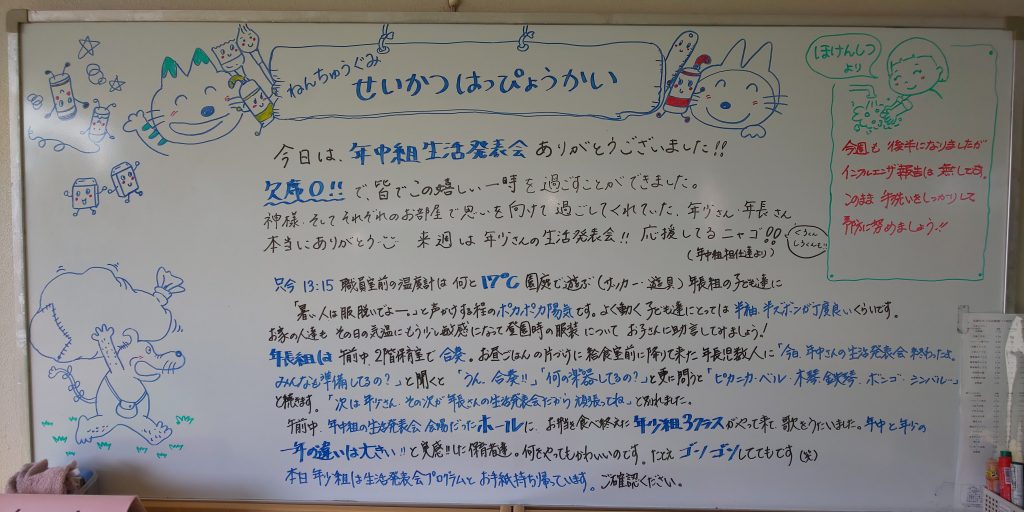 ねんちゅうぐみ
せいかつはっぴょうかい
ほけんしつ
より
今週も後半になりましたが
インフルエンザ報告は無しです。
このまま手洗いをしっかりして
予防に努めましょう!!
今日は、年中組生活発表会ありがとうございました!!
欠席0!!で、皆でこの嬉しい一時を過ごすことができました。
神様、そしてそれぞれのお部屋で思いを向けて過ごしてくれていた、年少さん・年長さん
本当にありがとう 来週は年少さんの生活発表会!! 応援してるニャゴ!!
(年中組担任達より)
只今13:15 職員室前の温度計は何と17℃ 園庭で遊ぶ(サッカー・遊具)年長組の子ども達に
「暑い人は服脱いでよー。」と声かけする程のポカポカ陽気です。よく動く子ども達にとっては半袖、半ズボンが丁度良いくらいです。
お家の人達も その日の気温にもう少し敏感になって登園時の服装について お子さんに助言してみましょう!
年長組は 午前中、2階保育室で合奏。お昼ごはんの片づけに給食室前に降りて来た年長児数人に「今日、年中さんの生活発表会終わったよ。
みんなも準備してるの?」と聞くと「うん、合奏!!」「何の楽器してるの?」と更に問うと「ピカニカ・ベル・木琴・鉄琴・ボンゴ・シンバル…」
と続きます。「次は年少さん、その次が年長さんの生活発表会だから頑張ってね」と別れました。
午前中、年中組の生活発表会 会場だったホールに、お昼を食べ終えた年少組3クラスがやって来て歌をうたいました。年中と年少の
一年の違いは大きい!!と実感!!した保育者達。何をやってもかわいいのです。たとえゴンゴンしててもです(笑)
本日 年少組は生活発表会プログラムとお手紙持ち帰っています。ご確認ください。